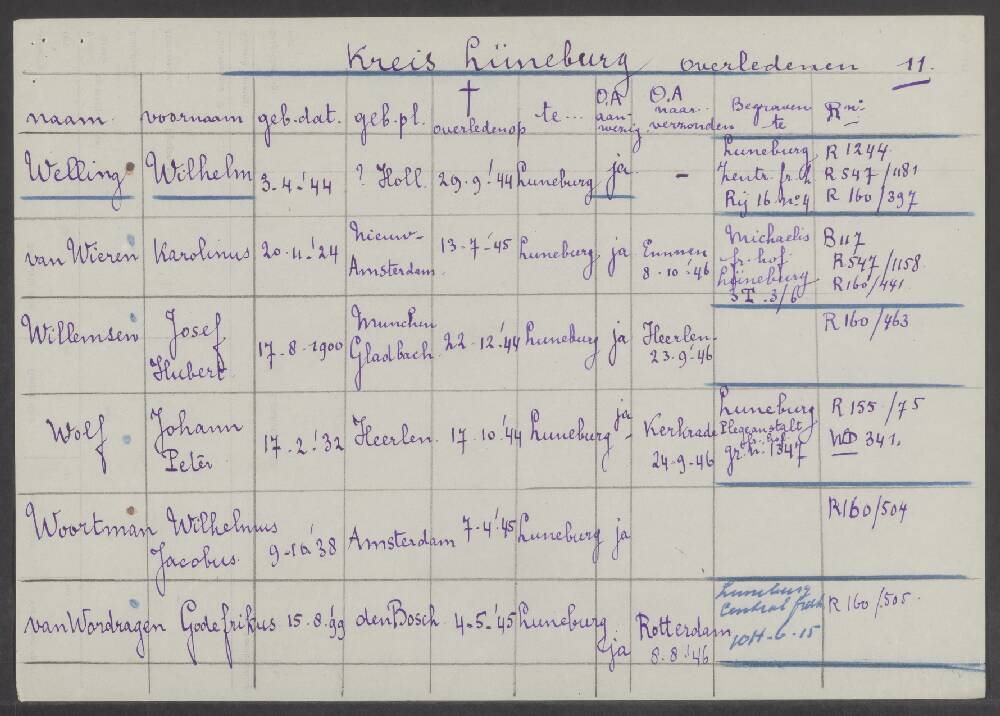 Kreis Lüneburg overledenen 11.
naam. voornaam geb.dat. geb.pl. † overleden op te... O.A aan-wezig O.A naar verzonden Begraven te R nr.
Welling Wilhelm 3-4-'44 ? Holl. 29.9.'44 Luneburg ja - Luneburg R 1244
Zentr. fr.h R 547/1181
Rij 16 no 4 R 160/397
van Wieren Karolinus 20-11-'24 Nieuw- 13-7-'45 Luneburg ja Emmen Michaelis B117
Amsterdam 8.10.'46 fr.hof. R547/1158
Lüneburg R160/441
3I-3/6
Willemsen Josef 17-8-1900 Munchen 22-12-'44 Luneburg ja Heerlen. R160/463
Hubert. Gladbach 23.9-'46
Wolf Johann 17-2-'32 Heerlen. 17.10.'44 Luneburg ja Kerkrade Luneburg R 155/75
Peter 24-9-'46 Plegeanstalt WD 341.
fr.hof.
gr.nr. 1347
Woortman Wilhelmus 9-10-'38 Amsterdam 7-4-'45 Luneburg ja R160/504
Jacobus.
van Wordragen Godefrikus 15.8.'99 den Bosch 4-5-'45 Luneburg ja Rotterdam Luneburg R 160/505.
8.8.'46 Central